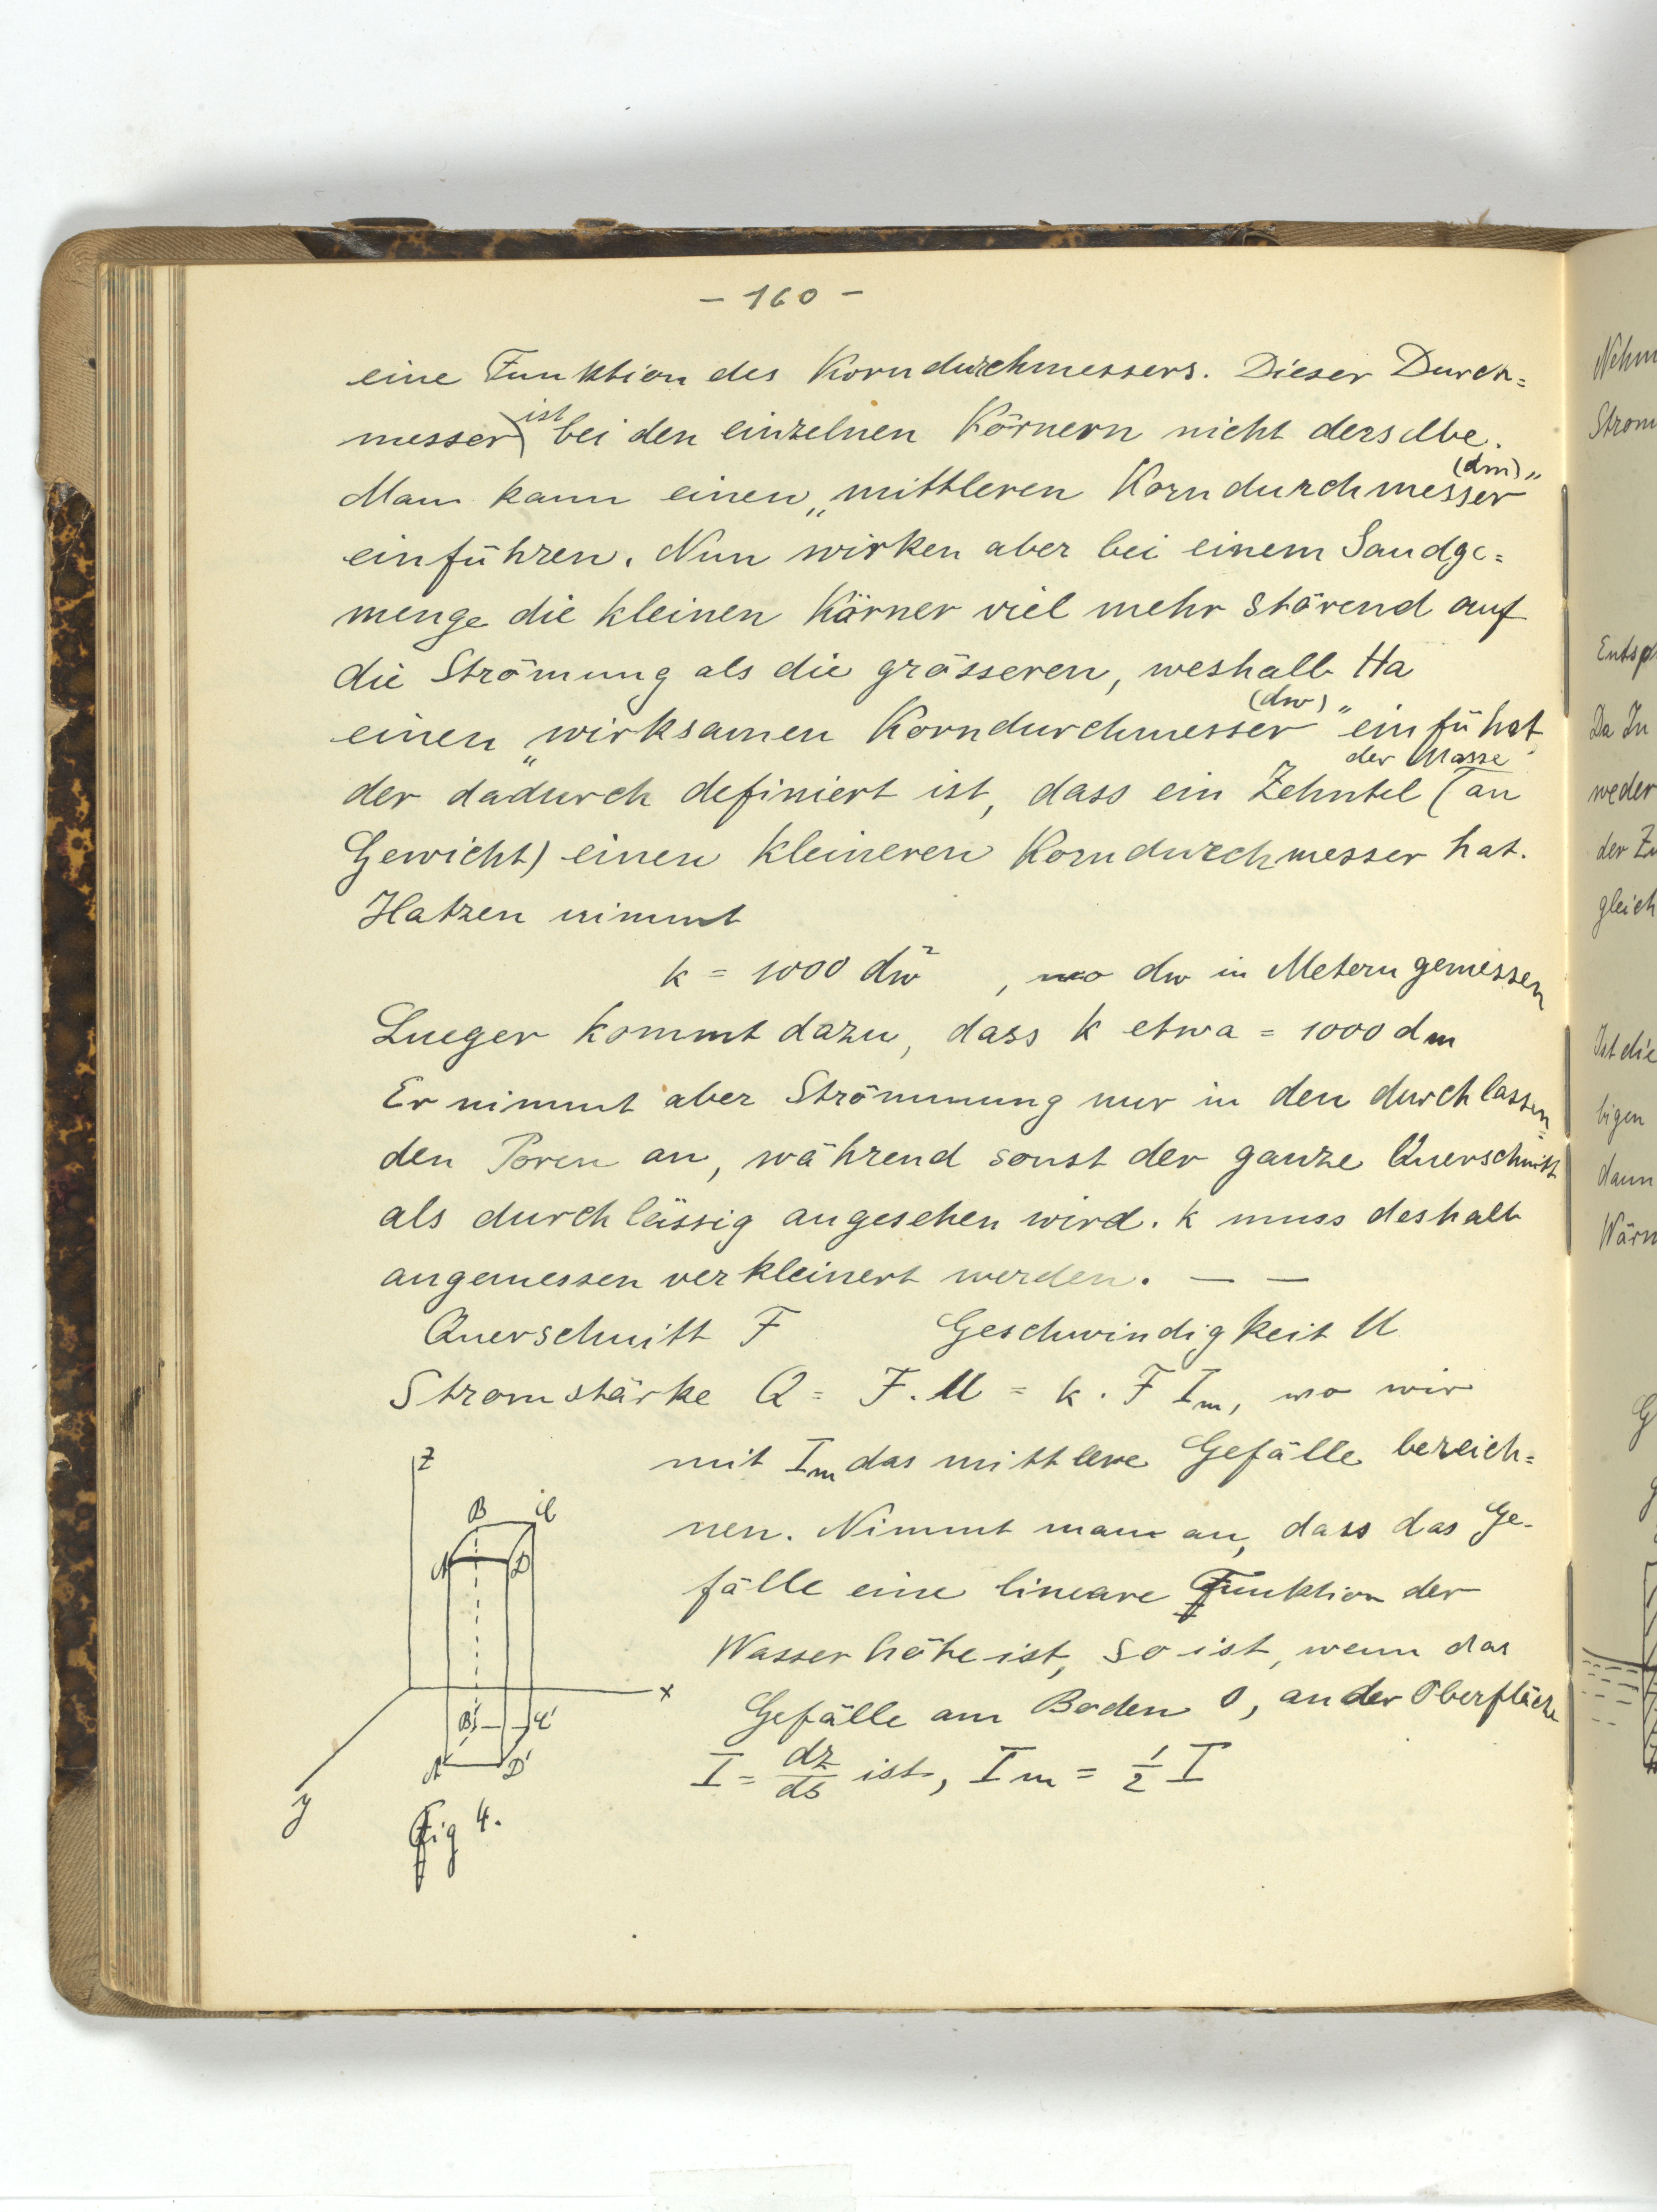 - 160 -
eine Funktion des Korndurchmessers. Dieser Durch=
ist
messer bei den einzelnen Körnern nicht derselbe.
(dm)
Man kann einen „mittleren Korndurchmesser"
einführen. Nun wirken aber bei einem Sandge=
menge die kleinen Körner viel mehr störend auf
die Strömung als die grösseren, weshalb Ha
(dw)
einen „wirksamen Korndurchmesser" einführt,
der Masse
der dadurch definiert ist, dass ein Zehntel (an
Gewicht) einen kleineren Korndurchmesser hat.
Hatzen nimmt
k = 1000 dw², wo dw in Metern gemessen
Lueger kommt dazu, dass k etwa = 1000 dm
Er nimmt aber Strömmung nur in den durchlassen=
den Poren an, während sonst der ganze Querschnitt
als durchlässig angesehen wird. k muss deshalb
angemessen verkleinert werden. — —
Querschnitt F Geschwindigkeit U
Stromstärke Q = F. U = k. F Im, wo wir
mit Im das mittlere Gefälle bezeich=
nen. Nimmt man an, dass das Ge-
fälle eine lineare Funktion der
Wasserhöhe ist, so ist, wenn das
Gefälle am Boden 0, an der Oberfläche
I = dz/ds ist, Im = 1/2 I
z
B C
A D
x
B' C'
A' D'
y
Fig 4.
Nehm
Strom
Entsp
Da In
weder
der Zu
gleich
Ist die
bigen
dann
Wärm
G